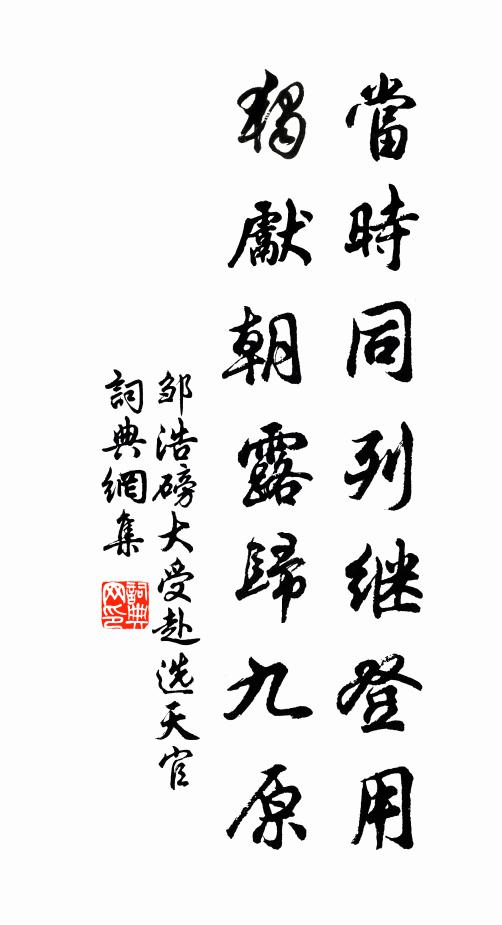 當時同列继登用
獨獻朝露歸九原
邹浩磅大受赴选天官
詞典網集
詞典网印